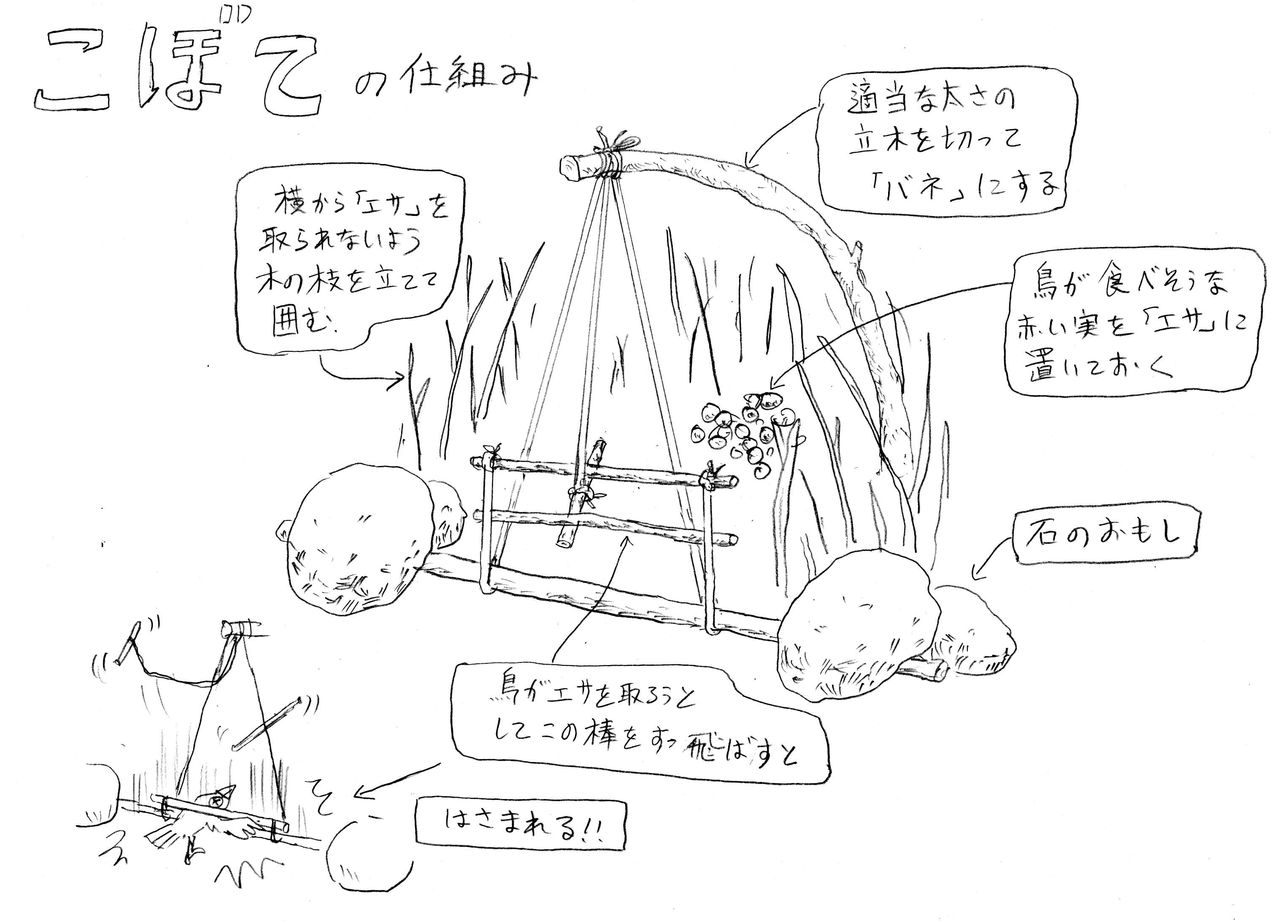 こぼての仕組み
適当な太さの
立木を切って
「バネ」にする
横から「エサ」を
取られないよう
木の枝を立てて
囲む.
鳥が食べそうな
赤い実を「エサ」に
置いておく
石のおもし
鳥がエサを取ろうと
してこの棒をすっ飛ばすと
はさまれる!!